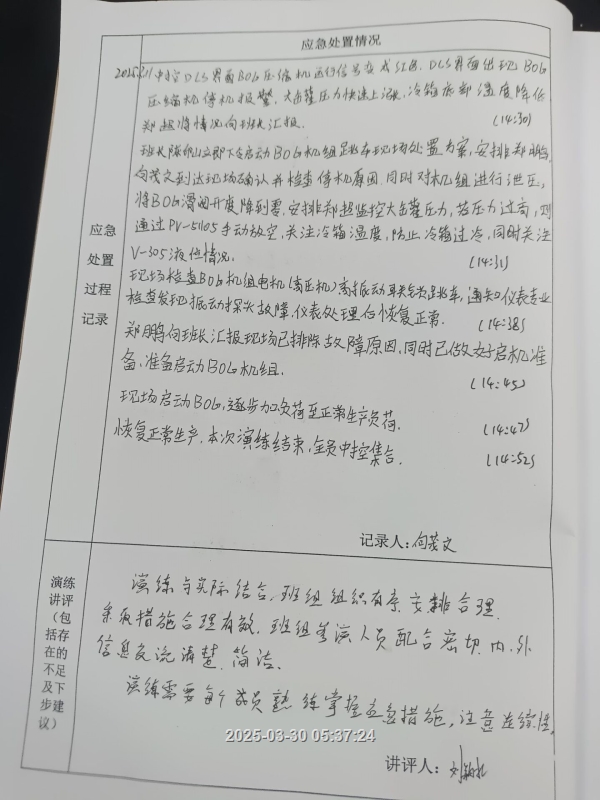 应急处置情况
中控DCS界面BOG压缩机运行信号变成红色,DCS界面出现BOG
压缩机停机报警,大罐压力快速上涨,冷箱底部温度降低
郑超将情况向班长汇报. (14:30)
班长陈 立即下令启动BOG机组跳车现场处置方案,安排郑鹏,
向茂文到达现场确认并检查停机原因,同时对机组进行泄压,
将BOG滑阀开度降到零,安排郑超监控大罐压力,若压力过高,则
通过PV-51105手动放空,关注冷箱温度,防止冷箱过冷,同时关注
V-305液位情况. (14:31)
现场检查BOG机组电机(高压机)高振动联锁跳车,通知仪表专业
检查发现振动探头故障,仪表处理后恢复正常. (14:38)
郑鹏向班长汇报现场已排除故障原因,同时已做好启机准
备,准备启动BOG机组. (14:45)
现场启动BOG,逐步加负荷至正常生产负荷. (14:47)
恢复正常生产.本次演练结束,全员中控集合. (14:52)
应急
处置
过程
记录
记录人:向茂文
演练
讲评
(包
括存
在的
不足
及下
步建
议)
演练与实际结合,班组组织有序,安排合理.
采取措施合理有效.班组参演人员配合密切,内、外
信息交流清楚、简洁.
演练需要每个成员熟练掌握应急措施,注意连续性.
2025-03-30 05:37:24
讲评人:刘